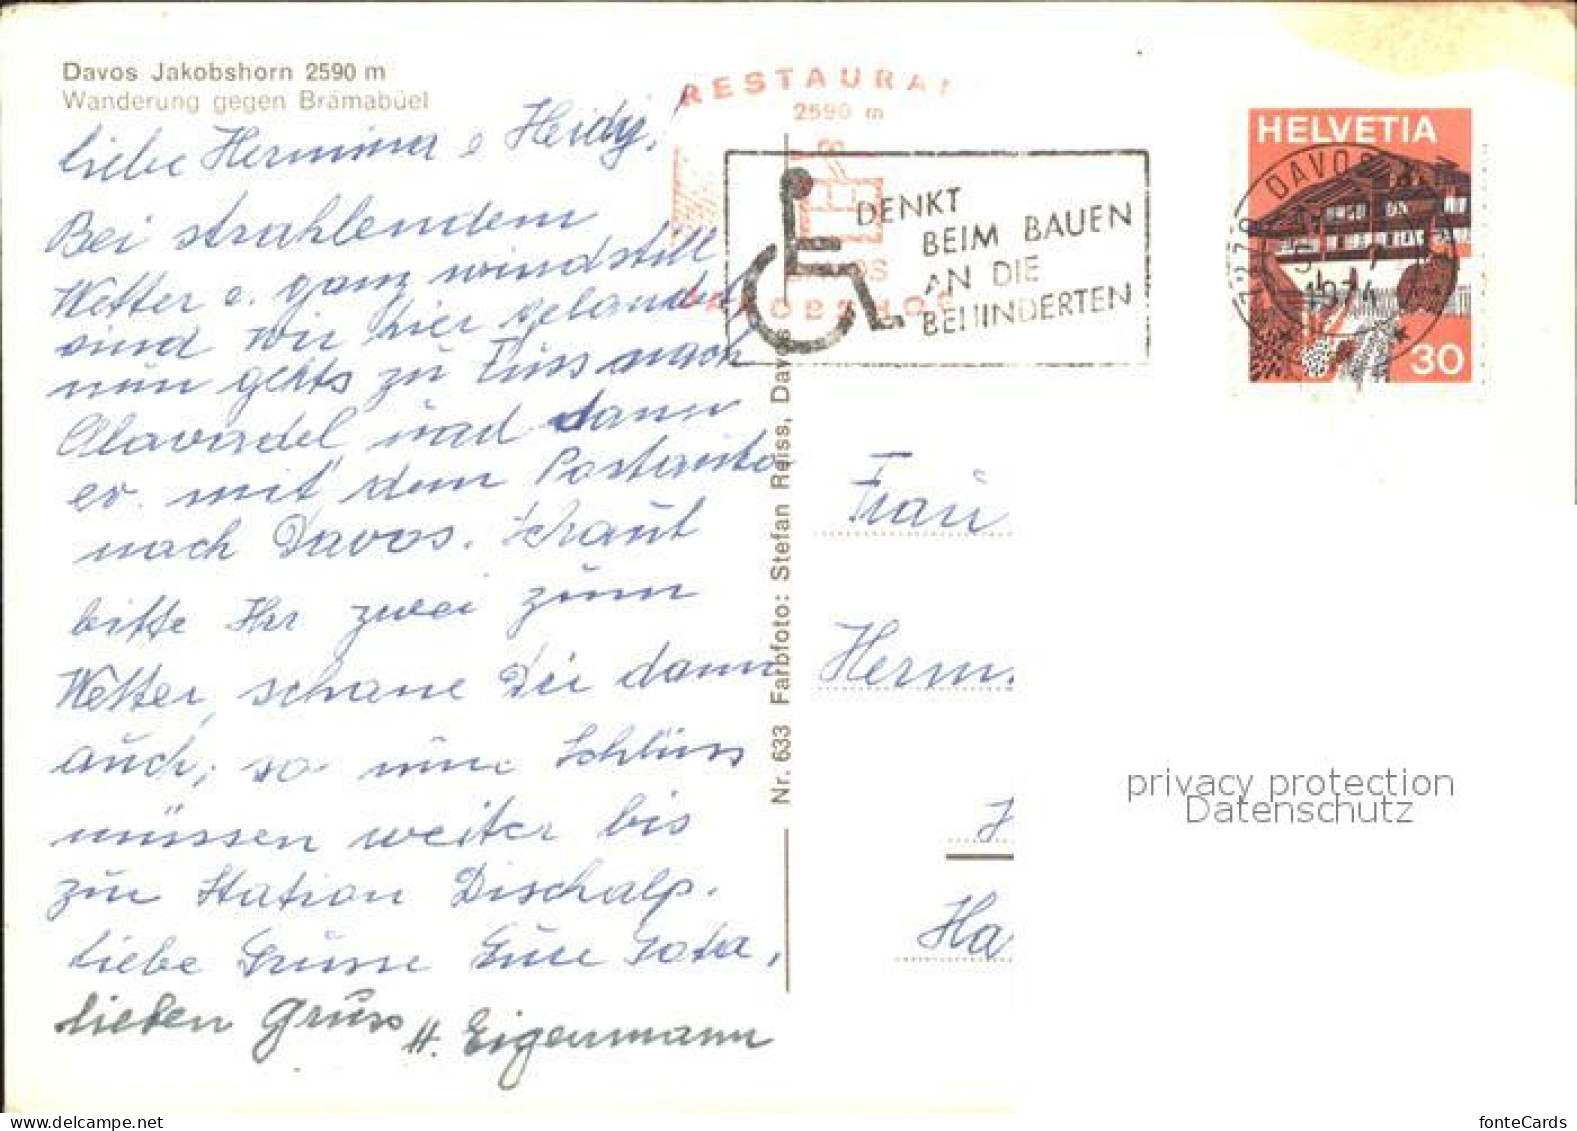 Davos Jakobshorn 2590 m
Wanderung gegen Brämabüel
liebe Hermina e Heidy!
Bei strahlendem
Wetter e. ganz windstill
sind wir hier gelandet,
nun gehts zu Fuss nach
Clavadel und dann
ev. mit dem Postauto
nach Davos. Schaut
bitte Ihr zwei zum
Wetter, schaue Die dann
auch, so nun Schluss
müssen weiter bis
zur Station Dischalp.
liebe Grüsse Eure Gota,
lieben Gruss H. Eigenmann
Nr. 633 Farbfoto: Stefan Reiss, Davos
RESTAURA
2590 m
DENKT
BEIM BAUEN
AN DIE
BEHINDERTEN
HELVETIA
DAVOS
1974
30
Frau
Herm.
Ha
privacy protection
Datenschutz
fonteCards